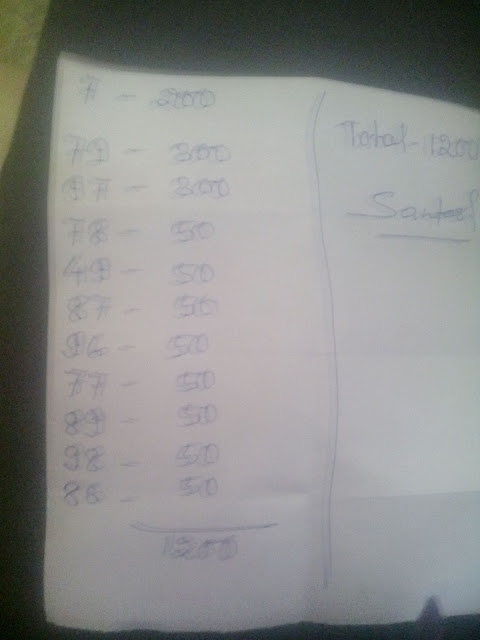 7 - 200
79 - 300
97 - 300
78 - 50
49 - 50
87 - 50
96 - 50
77 - 50
89 - 50
98 - 50
86 - 50
1200
Total - 1200